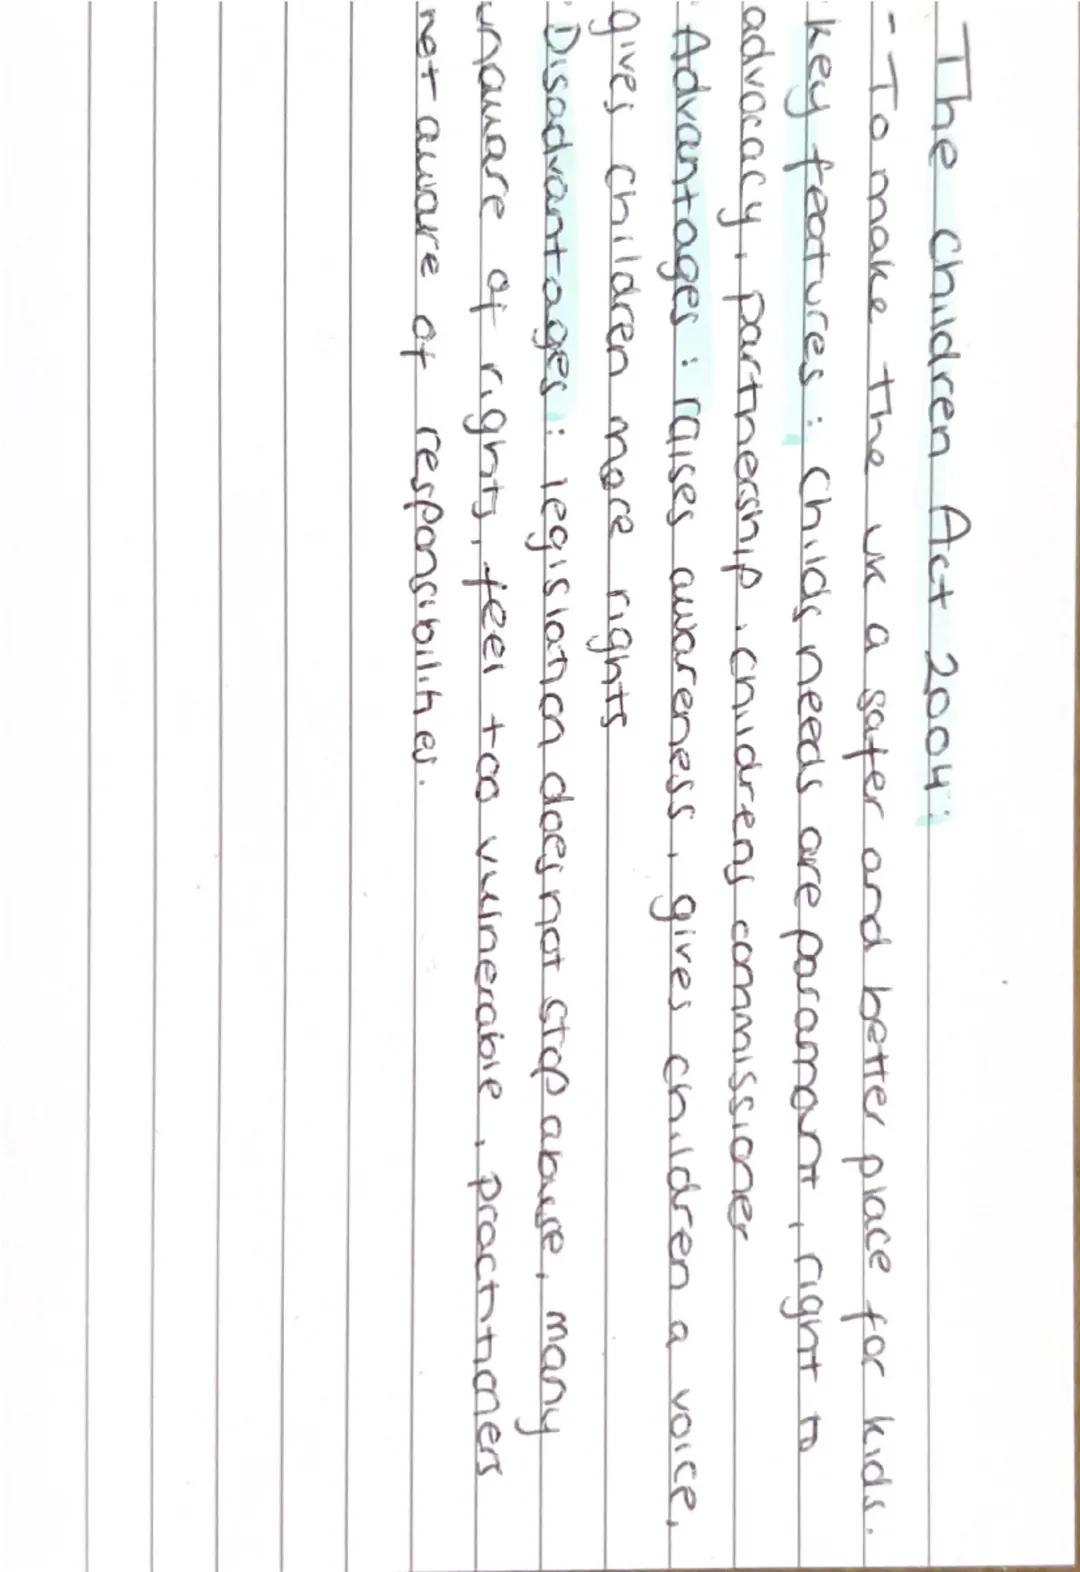 The children Act 2004:
- To make the UK a safer and better place for kids.
key features: childs needs are paramount, right to
advocacy, partnership, childrens commissioner
Advantages: raises awareness, gives children a voice,
gives children more rights
Disadvantages: legislation does not stop abuse, many
unaware of rights, feel too vulnerable, practitioners
not aware of responsibilities.